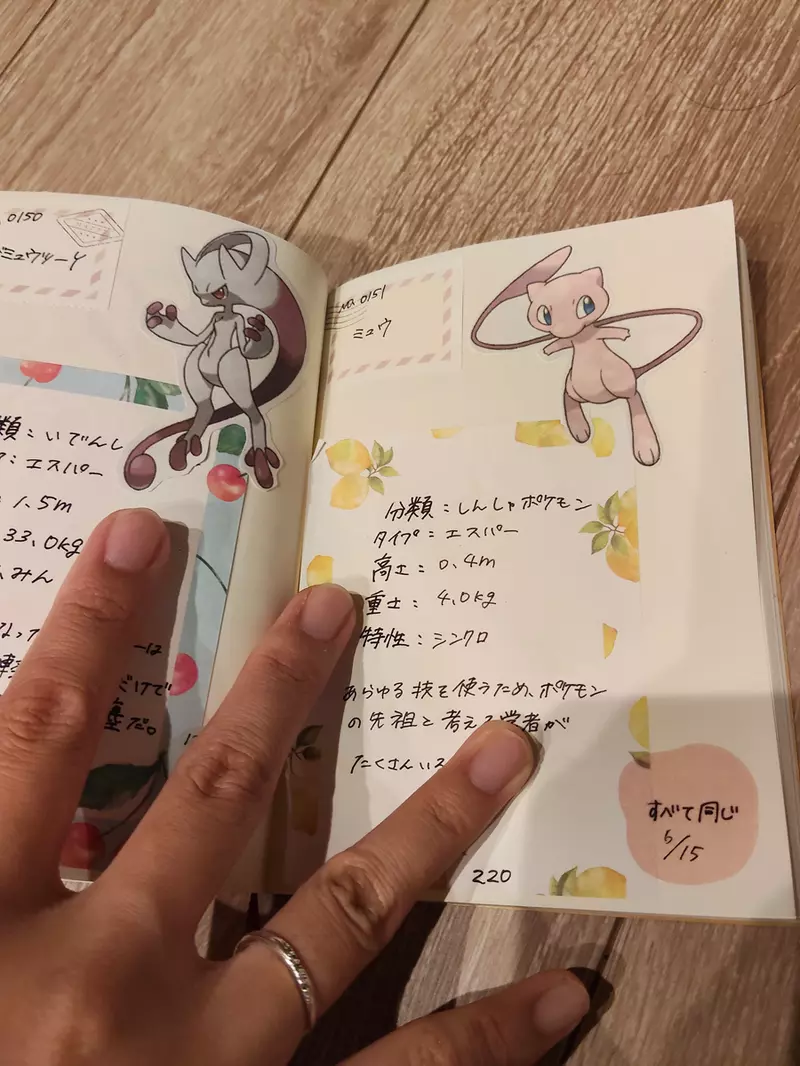 0150
ミュウツーY
類:いでんし
:エスパー
1.5m
33.0kg
みん
なって
ーは
だけで
墓だ。
No. 0151
ミュウ
分類:しんしゅポケモン
タイプ:エスパー
高さ: 0.4m
重さ: 4.0kg
特性:シンクロ
あらゆる技を使うため、ポケモン
の先祖と考える学者が
たくさんいる
220
すべて同じ
6/15